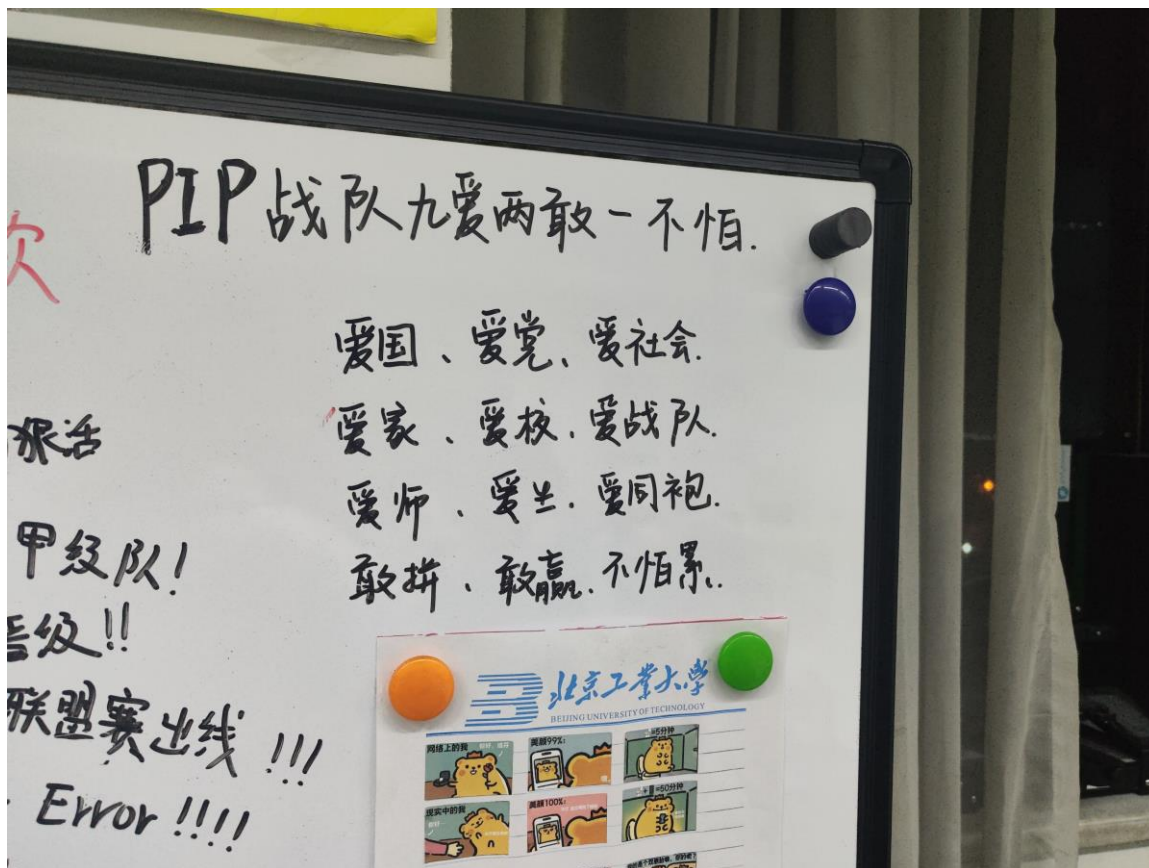 PIP战队九爱两敢一不怕.
次
爱国、爱党、爱社会.
爱家、爱校、爱战队.
狠活
爱师、爱生、爱同袍.
甲级队!
敢拼、敢赢、不怕累.
晋级!!
联盟赛出线!!!
Error!!!!
北京工业大学
BEIJING UNIVERSITY OF TECHNOLOGY
网络上的我
美颜99%:
=5分钟
现实中的我
美颜100%:
=50分钟